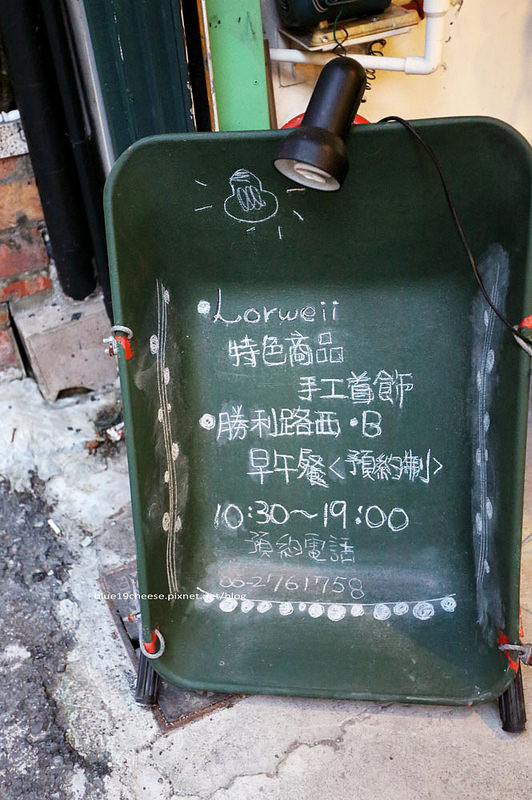 Lorweii
特色商品
手工首飾
勝利路西·B
早午餐<預約制>
10:30~19:00
預約電話
06-2761758
blue19cheese.pixnet.net/blog